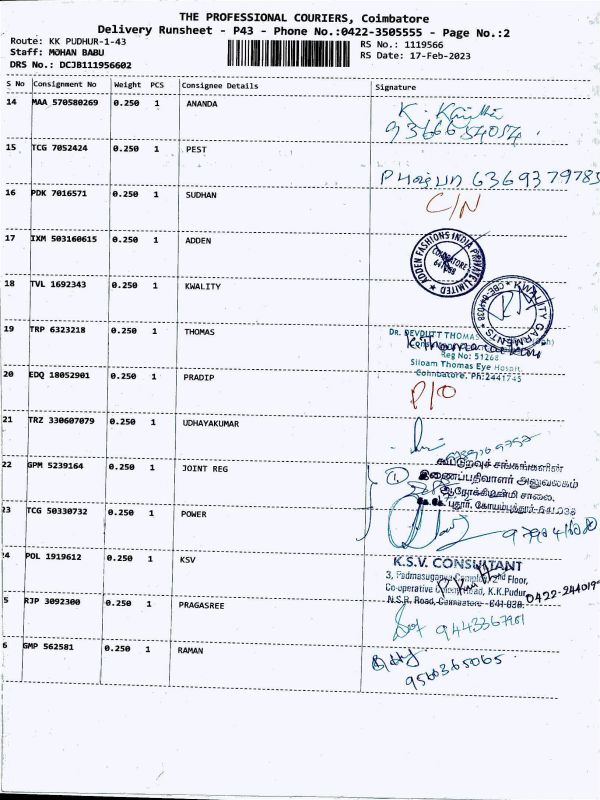 THE PROFESSIONAL COURIERS, Coimbatore
Delivery Runsheet - P43 - Phone No.:0422-3505555 - Page No.:2
Route: KK PUDHUR-1-43 RS No.: 1119566
Staff: MOHAN BABU RS Date: 17-Feb-2023
DRS No.: DCJB111956602
S No Consignment No Weight PCS Consignee Details Signature
14 MAA 570580269 0.250 1 ANANDA
15 TCG 7052424 0.250 1 PEST
6369379785
16 PDK 7016571 0.250 1 SUDHAN C/N
17 IXM 503160615 0.250 1 ADDEN
ADDEN FASHIONS INDIA PRIVATE LIMITED
COIMBATORE
18 TVL 1692343 0.250 1 KWALITY
KWALITY GARMENTS
19 TRP 6323218 0.250 1 THOMAS
DR. DEVDUTT THOMAS
Reg No: 51268
Siloam Thomas Eye Hospit
Coimbatore. Ph:2441745
20 EDQ 18052901 0.250 1 PRADIP P/O
21 TRZ 330607079 0.250 1 UDHAYAKUMAR
22 GPM 5239164 0.250 1 JOINT REG
கூட்டுறவுச் சங்கங்களின்
இணைப்பதிவாளர் அலுவலகம்
சாலை,
கே.கே. புதூர், கோயம்புத்தூர்-641 038
23 TCG 50330732 0.250 1 POWER
24 POL 1919612 0.250 1 KSV
K.S.V. CONSULTANT
Floor,
Co-operative Road, K.K.Pudur,
N.S.R. Road, Coimbatore - 641 038.
5 RJP 3092300 0.250 1 PRAGASREE
9443367901
6 GMP 562581 0.250 1 RAMAN